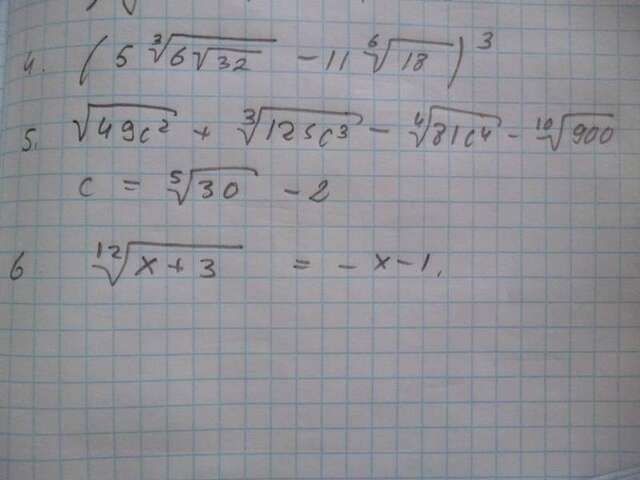 4. (5 ∛(6√32) − 11 ⁶√18)³
5. √(49c²) + ∛(125c³) − ⁴√(81c⁴) − ¹⁰√900
c = ⁵√30 − 2
6 ¹²√(x + 3) = − x − 1.